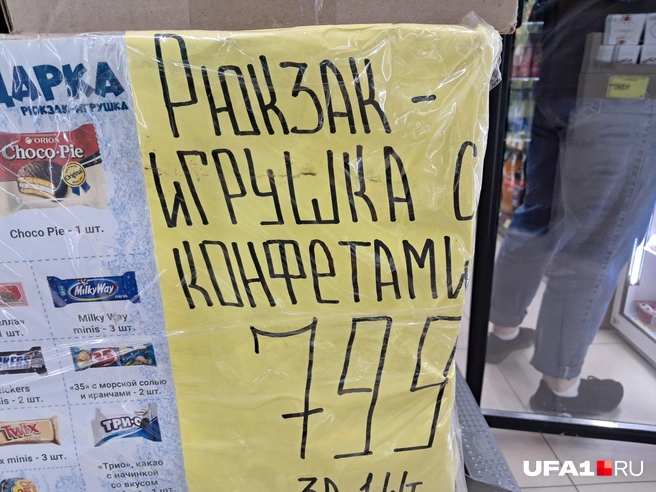 ДАРКА
РЮКЗАК-ИГРУШКА
ORION
Choco·Pie
Original
Choco Pie - 1 шт.
MilkyWay
minis
Milky Way
minis - 3 шт.
1 шт.
«35» с морской солью
и кранчами - 2 шт.
- 2 шт.
TWIX
minis - 3 шт.
ТРИО
«Трио», какао
с начинкой
со вкусом
РЮКЗАК-
ИГРУШКА С
КОНФЕТАМИ
799
ЗА 1 ШТ
UFA1.RU